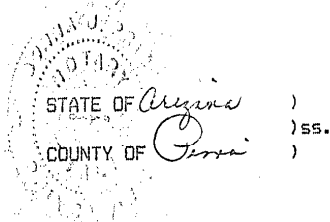 NOTARY
STATE OF Arizona )
)ss.
COUNTY OF Pima )